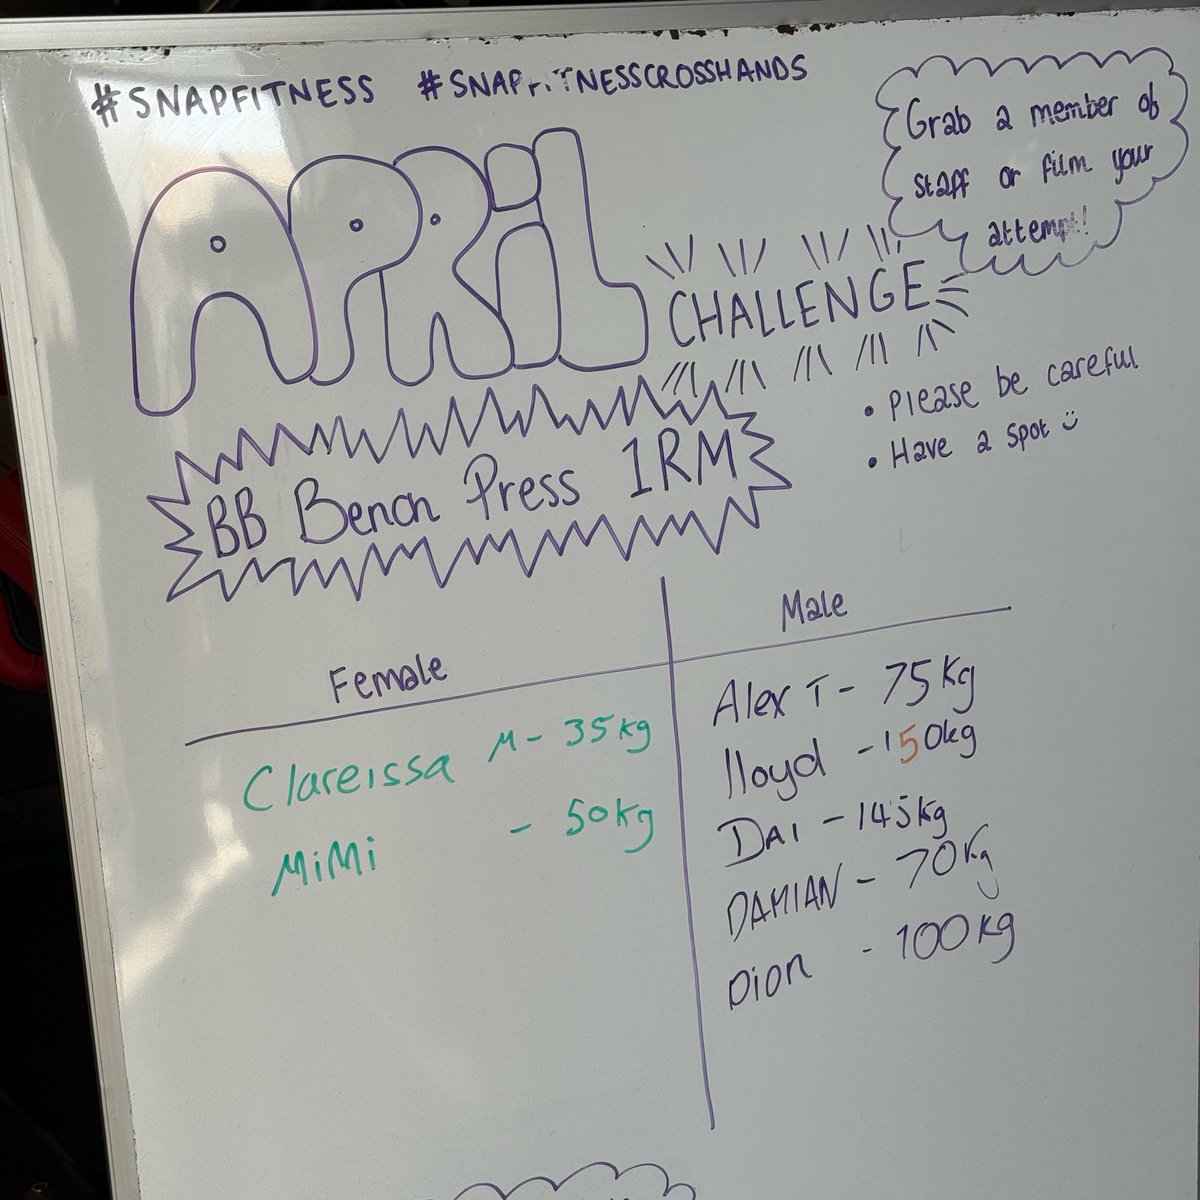 #SNAPFITNESS #SNAPFITNESSCROSSHANDS
Grab a member of
staff or film your
attempt!
APRIL
CHALLENGE
• Please be careful
• Have a spot
BB Bench Press 1RM
Female
Clareissa M - 35kg
MiMi - 50kg
Male
Alex T - 75kg
lloyd - 150kg
DAI - 145kg
DAMIAN - 70kg
Dion - 100kg